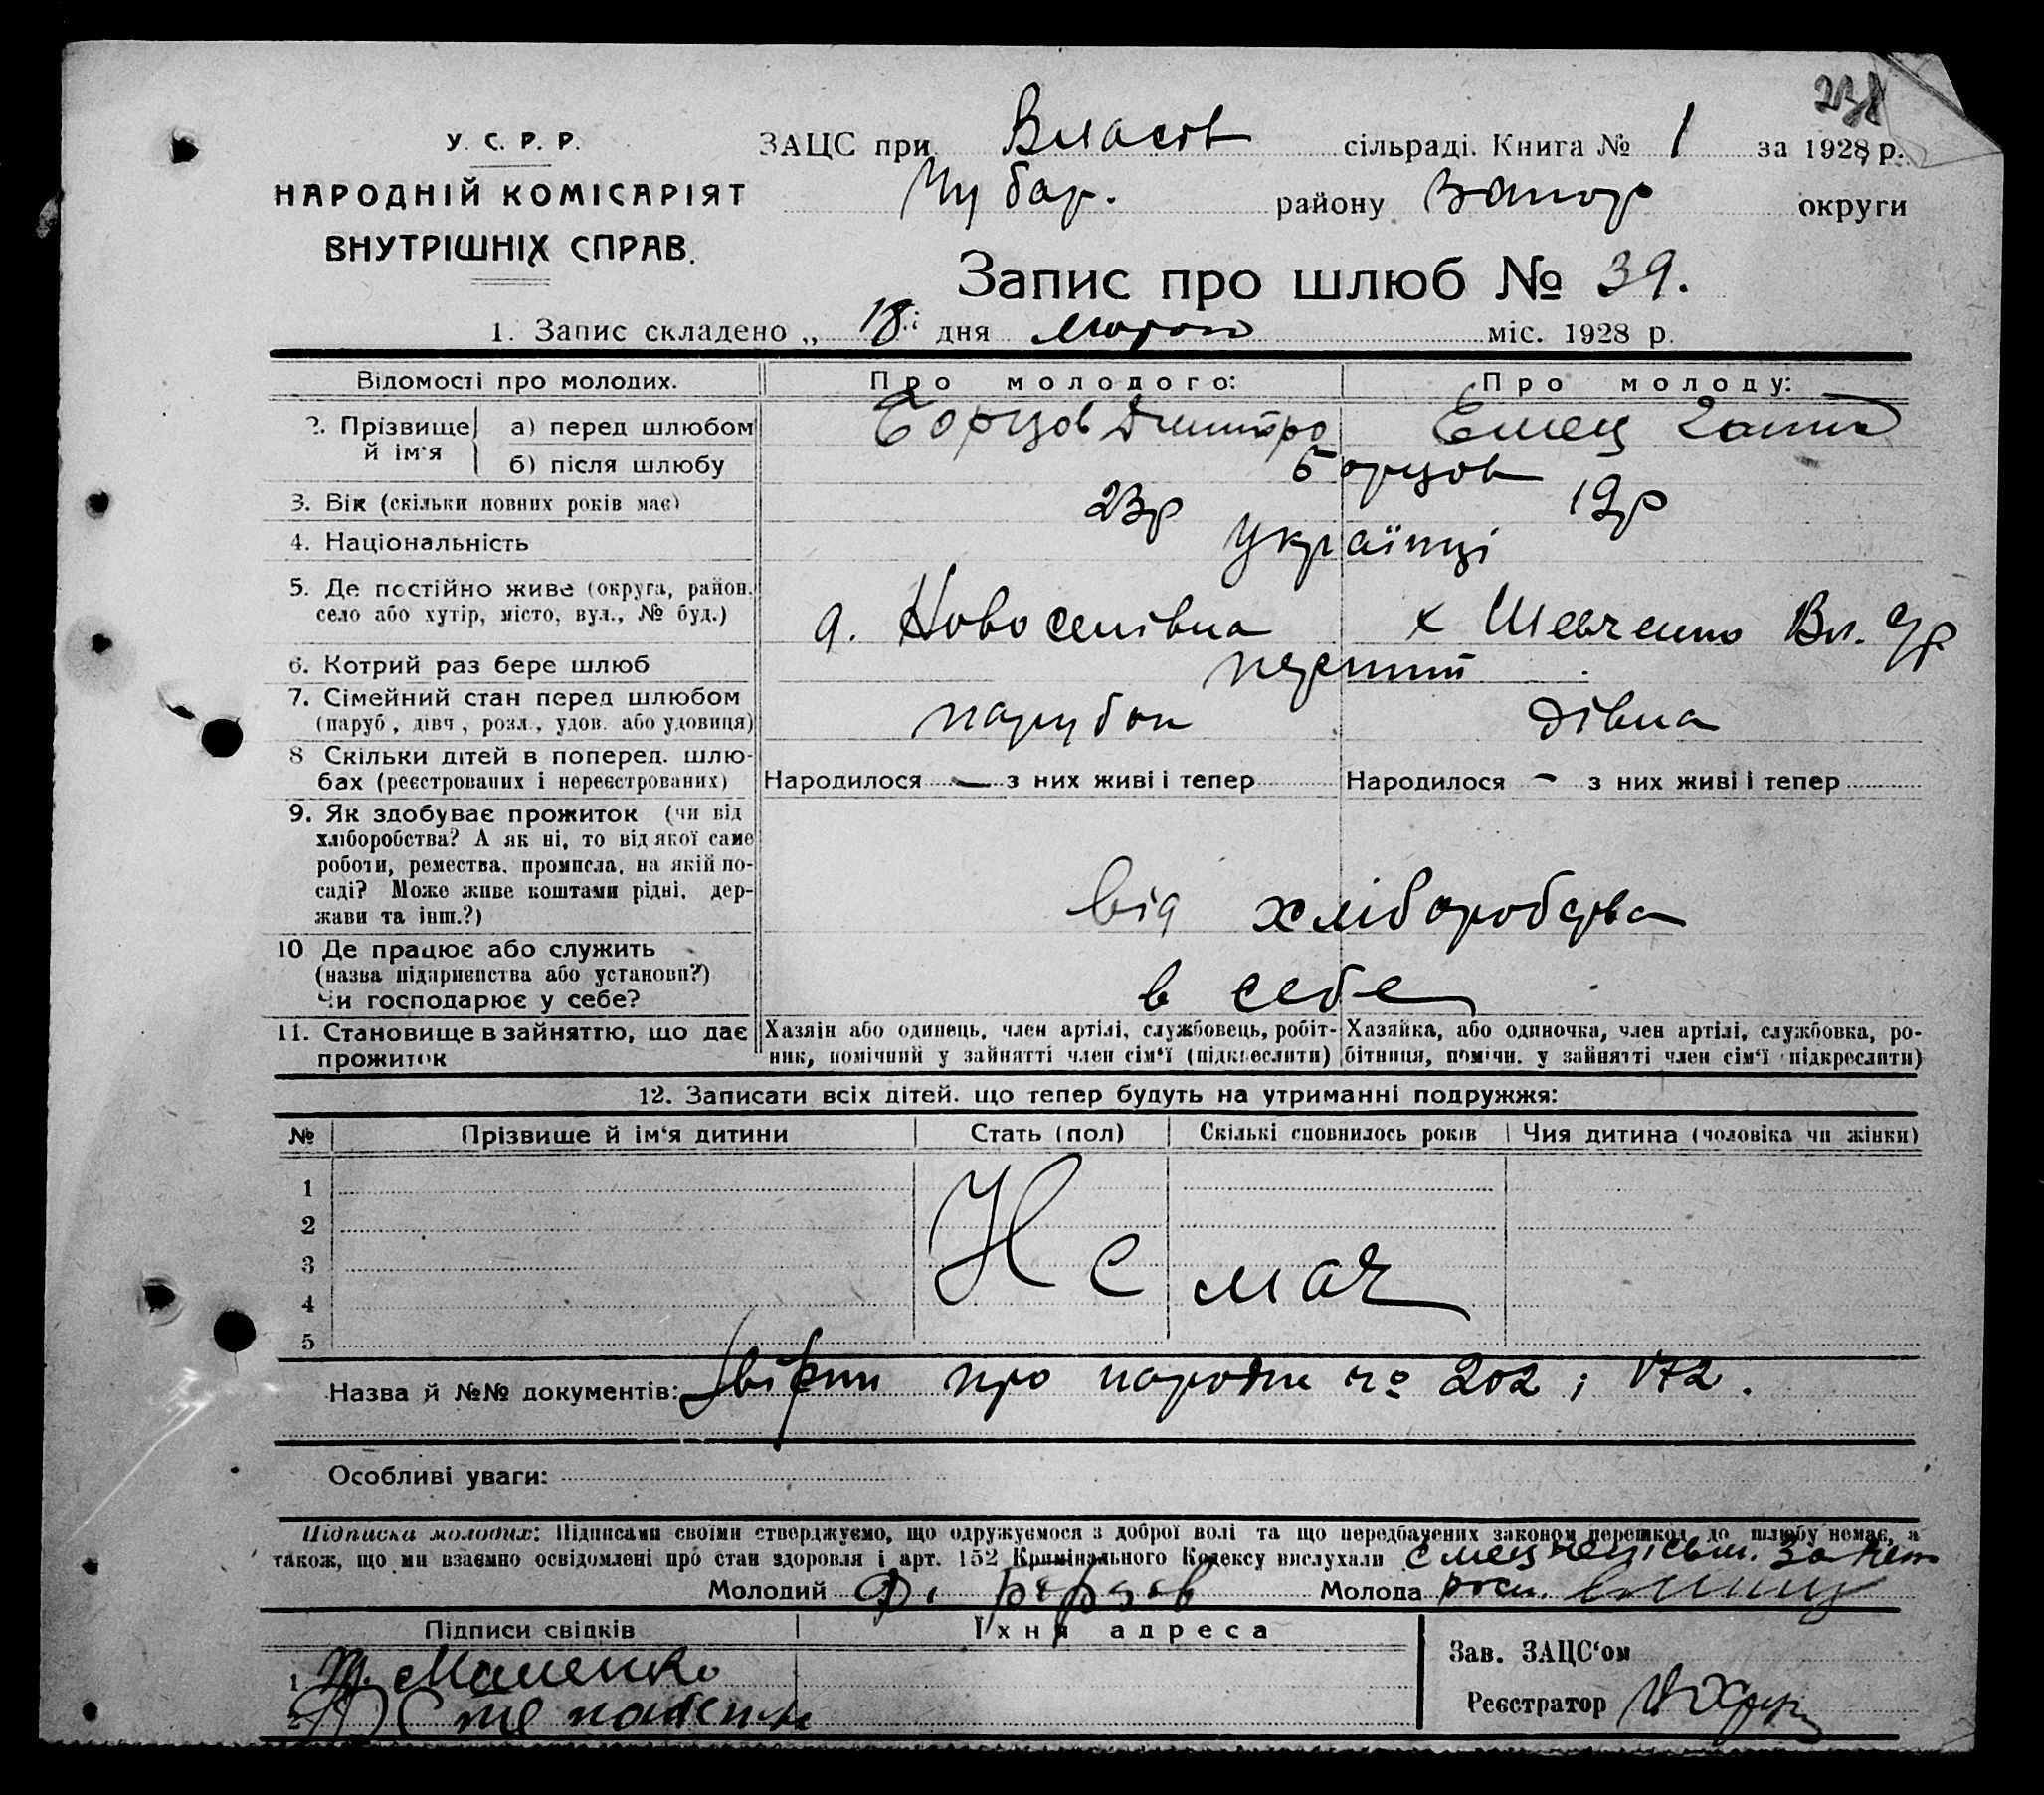 238
У. С. Р. Р.
НАРОДНІЙ КОМІСАРІЯТ
ВНУТРІШНІХ СПРАВ.
ЗАЦС при Власов сільраді. Книга № 1 за 1928 р.
Чубар. району Запор округи
Запис про шлюб № 39.
1. Запис складено „ 18 дня лютого міс. 1928 р.
Відомості про молодих. Про молодого: Про молоду:
2. Прізвище й ім'я а) перед шлюбом Борцов Дмитро Емец Ганна
б) після шлюбу Борцов
3. Вік (скільки повних років має) 23р 19р
4. Національність Українці
5. Де постійно живе (округа, район, село або хутір, місто, вул., № буд.) д. Новоселівка х Шевченко Вл. с/р
6. Котрий раз бере шлюб перший
7. Сімейний стан перед шлюбом (паруб., дівч., розл., удов. або удовиця) парубок дівка
8 Скільки дітей в поперед. шлюбах (реєстрованих і нереєстрованих) Народилося — з них живі і тепер Народилося - з них живі і тепер
9. Як здобуває прожиток (чи від
хліборобства? А як ні, то від якої саме
роботи, ремества, промисла, на якій по-
саді? Може живе коштами рідні, дер-
жави та інш.?) від хліборобства
10 Де працює або служить
(назва підприємства або установи?)
Чи господарює у себе? в себе
11. Становище в зайняттю, що дає прожиток
Хазяін або одинець, член артілі, службовець, робіт-
ник, помічний у зайнятті член сім'ї (підкреслити)
Хазяйка, або одиночка, член артілі, службовка, ро-
бітниця, помічн. у зайнятті член сім'ї підкреслити)
12. Записати всіх дітей. що тепер будуть на утриманні подружжя:
№ Прізвище й ім'я дитини Стать (пол) Скількі сповнилось років Чия дитина (чоловіка чи жінки)
1
2
3
4
5
Немає
Назва й №№ документів: про народж № 202 і 172.
Особливі уваги:
Підписка молодих: Підписами своїми стверджуємо, що одружуємося з доброї волі та що передбачених законом перешкод до шлюбу немає, а
також, що ми взаємно освідомлені про стан здоровля і арт. 152 Кримінального Кодексу вислухали Емец неписьм. за нет
Молодий Д. Борзов Молода росп.
Підписи свідків Їхня адреса
1. Маленко
2. Степаненко
Зав. ЗАЦС'ом
Реєстратор